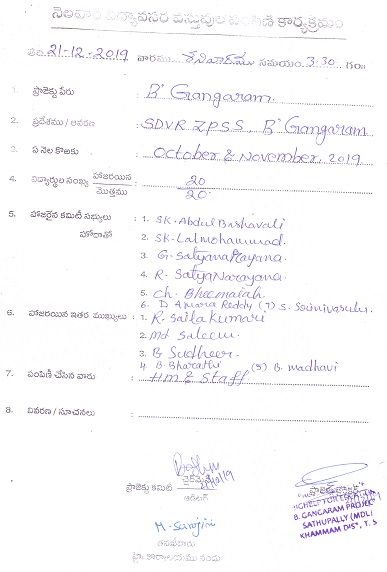 నెలవారి విద్యావసర వస్తువుల పంపిణి కార్యక్రమం
తేది. 21-12-2019 వారము. శనివారము సమయం. 3-30 గం॥
1. ప్రాజెక్టు పేరు : B' Gangaram.
2. ప్రదేశము / ఆవరణ : SDVR ZPSS, B' Gangaram
3. ఏ నెల కొఱకు : October & November, 2019.
4. విద్యార్థుల సంఖ్య హాజరయిన : 20
మొత్తము 20.
5. హాజరైన కమిటీ సభ్యులు : 1. SK. Abdul Bashavali
హోదాతో 2. SK. Lalmohammad.
3. G. Satyanarayana.
4. R. Satya Narayana.
5. Ch. Bheemaiah.
6. D Amara Reddy (7) S. Srinivasulu.
6. హాజరయిన ఇతర ముఖ్యులు : 1. R. Sailakumari
2. Md Saleem.
3. B Sudheer.
4. B. Bharathi (5) B. madhavi
7. పంపిణి చేసిన వారు : HM & Staff
8. వివరణ / సూచనలు :
ప్రాజెక్టు కమిటీ చైర్మెన్
ఆడిటర్
M. Sarojini
B. GANGARAM PROJECT
SATHUPALLY (MDL)
KHAMMAM DIS", T. S